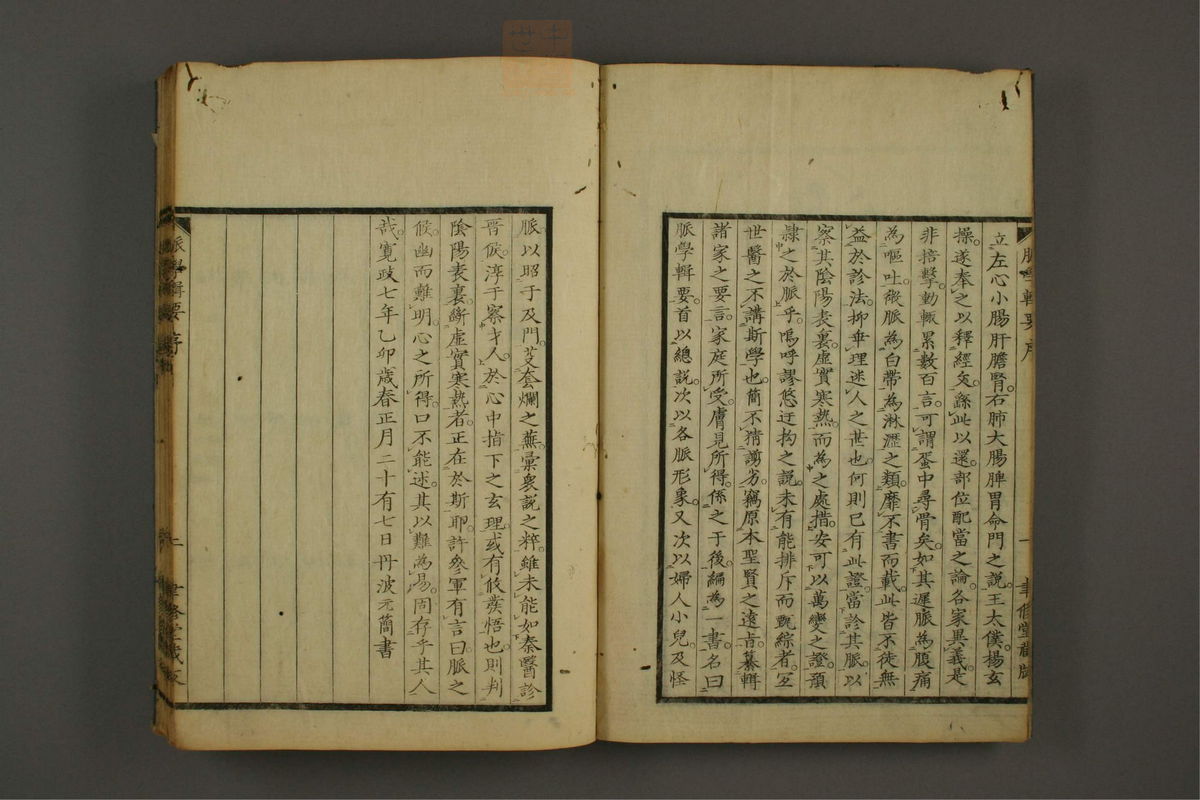 脈學輯要序
立左心小腸肝膽腎右肺大腸脾胃命門之說王太僕楊玄
操遂奉之以釋經矣繇此以還部位配當之論各家異義是
非掊擊動輒累數百言可謂蛋中尋骨矣如其遲脈為腹痛
為嘔吐微脈為白帶為淋瀝之類靡不書而載此皆不徒無
益於診法抑亦理迷人之甚也何則已有此證當診其脈以
察其陰陽表裏虛實寒熱而為之處措安可以萬變之證預
隸之於脈乎嗚呼謬悠迂拘之說未有能排斥而甄綜者宜
世醫之不講斯學也簡不猜謭劣竊原本聖賢之遠旨纂輯
諸家之要言家庭所受膚見所得係之于後編為一書名曰
脈學輯要首以總說次以各脈形象又次以婦人小兒及怪
一
聿修堂藏版
脈以昭于及門芟套爛之蕪彙衆說之粹雖未能如秦醫診
晉侯淳于察才人於心中指下之玄理或有攸發悟也則判
陰陽表裏辨虛實寒熱者正在於斯耶許參軍有言曰脈之
候幽而難明心之所得口不能述其以難為易固存乎其人
哉寬政七年乙卯歲春正月二十有七日丹波元簡書
脈學輯要序
聿修堂藏版